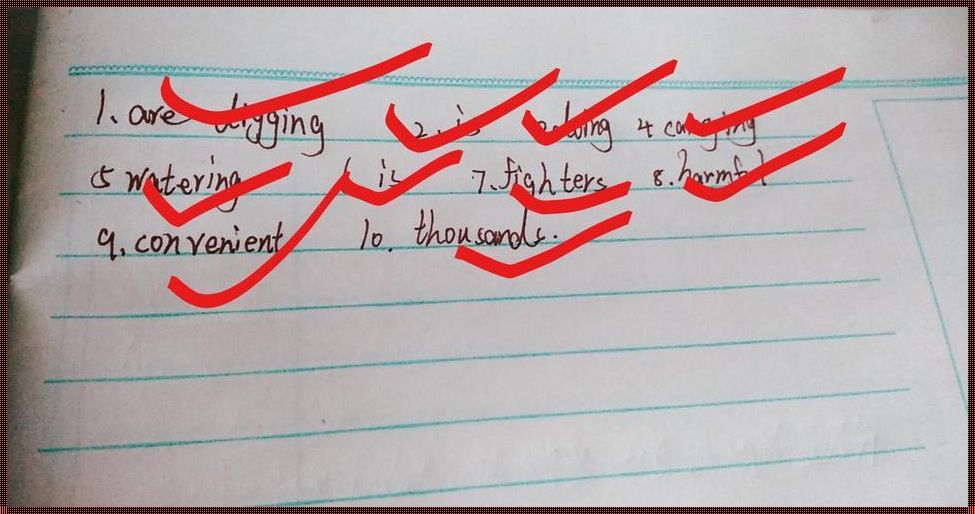 1. are digging 2. is 4 carrying
5 watering 6 is 7. fighters 8. harmful
9. convenient 10. thousands.